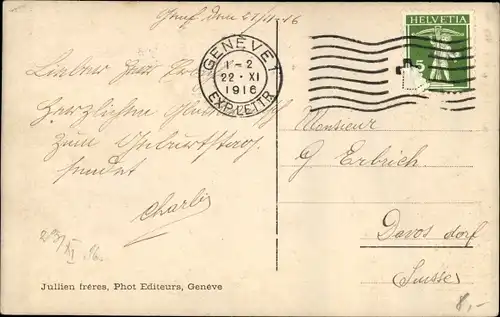 Genf, den 21/11.16
GENÈVE 1
1-2
22·XI
1916
EXP. LETTR.
HELVETIA
5
Lieber Herr
Herzlichen
zum Geburtstag
sendet
Charlie
Monsieur
G Erbrich
Davos dorf
Suisse
23/XI 16.
Jullien frères, Phot Editeurs, Genève
8,-